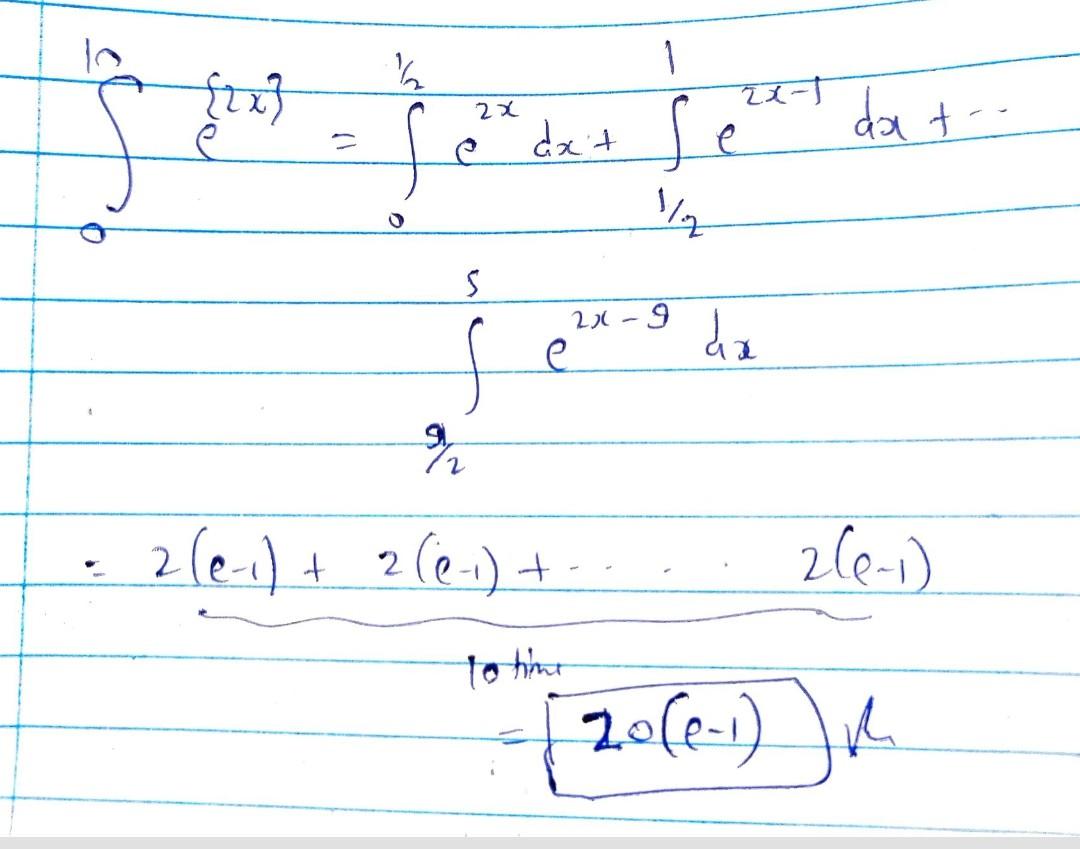 ∫₀¹⁰ e^{2x} = ∫₀^½ e^2x dx + ∫_1/2^1 e^2x-1 dx + ...
∫_9/2^5 e^2x-9 dx
= 2(e-1) + 2(e-1) + ..... 2(e-1)
10 time
= 20(e-1)